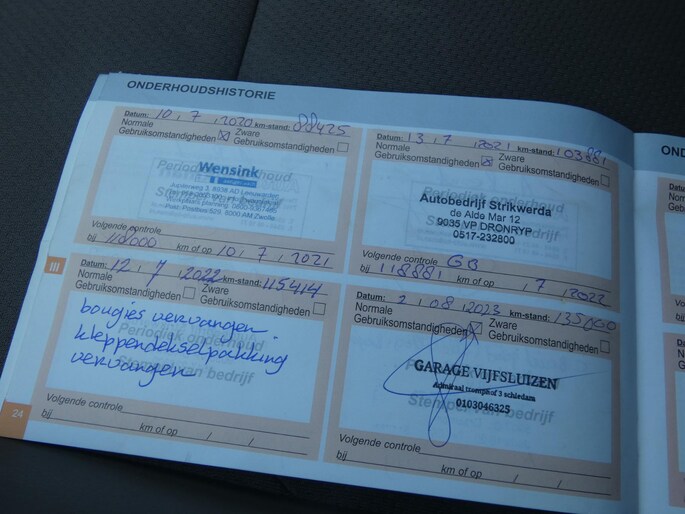 ONDERHOUDSHISTORIE
Datum: 10, 7, 2020 km-stand: 88425
Normale Gebruiksomstandigheden ☒ Zware Gebruiksomstandigheden ☐
Periodiek onderhoud
Wensink
Stempel van bedrijf
Volgende controle
bij 118000 km of op 10, 7, 2021
Datum: 13, 7, 2021 km-stand: 103881
Normale Gebruiksomstandigheden ☒ Zware Gebruiksomstandigheden ☐
Periodiek onderhoud
Autobedrijf Strikwerda
de Alde Mar 12
9035 VP DRONRYP
0517-232800
Volgende controle GB
bij 118881 km of op , 7, 2022
III
Datum: 12, 7, 2022 km-stand: 115414
Normale Gebruiksomstandigheden ☐ Zware Gebruiksomstandigheden ☐
Periodiek onderhoud
Stempel van bedrijf
bougies vervangen
kleppendekselpakking
vervangen
Volgende controle
bij km of op / /
Datum: 2, 08, 2023 km-stand: 135000
Normale Gebruiksomstandigheden ☒ Zware Gebruiksomstandigheden ☐
GARAGE VIJFSLUIZEN
3 schiedam
0103046325
Stempel van bedrijf
Volgende controle
bij km of op / /
24